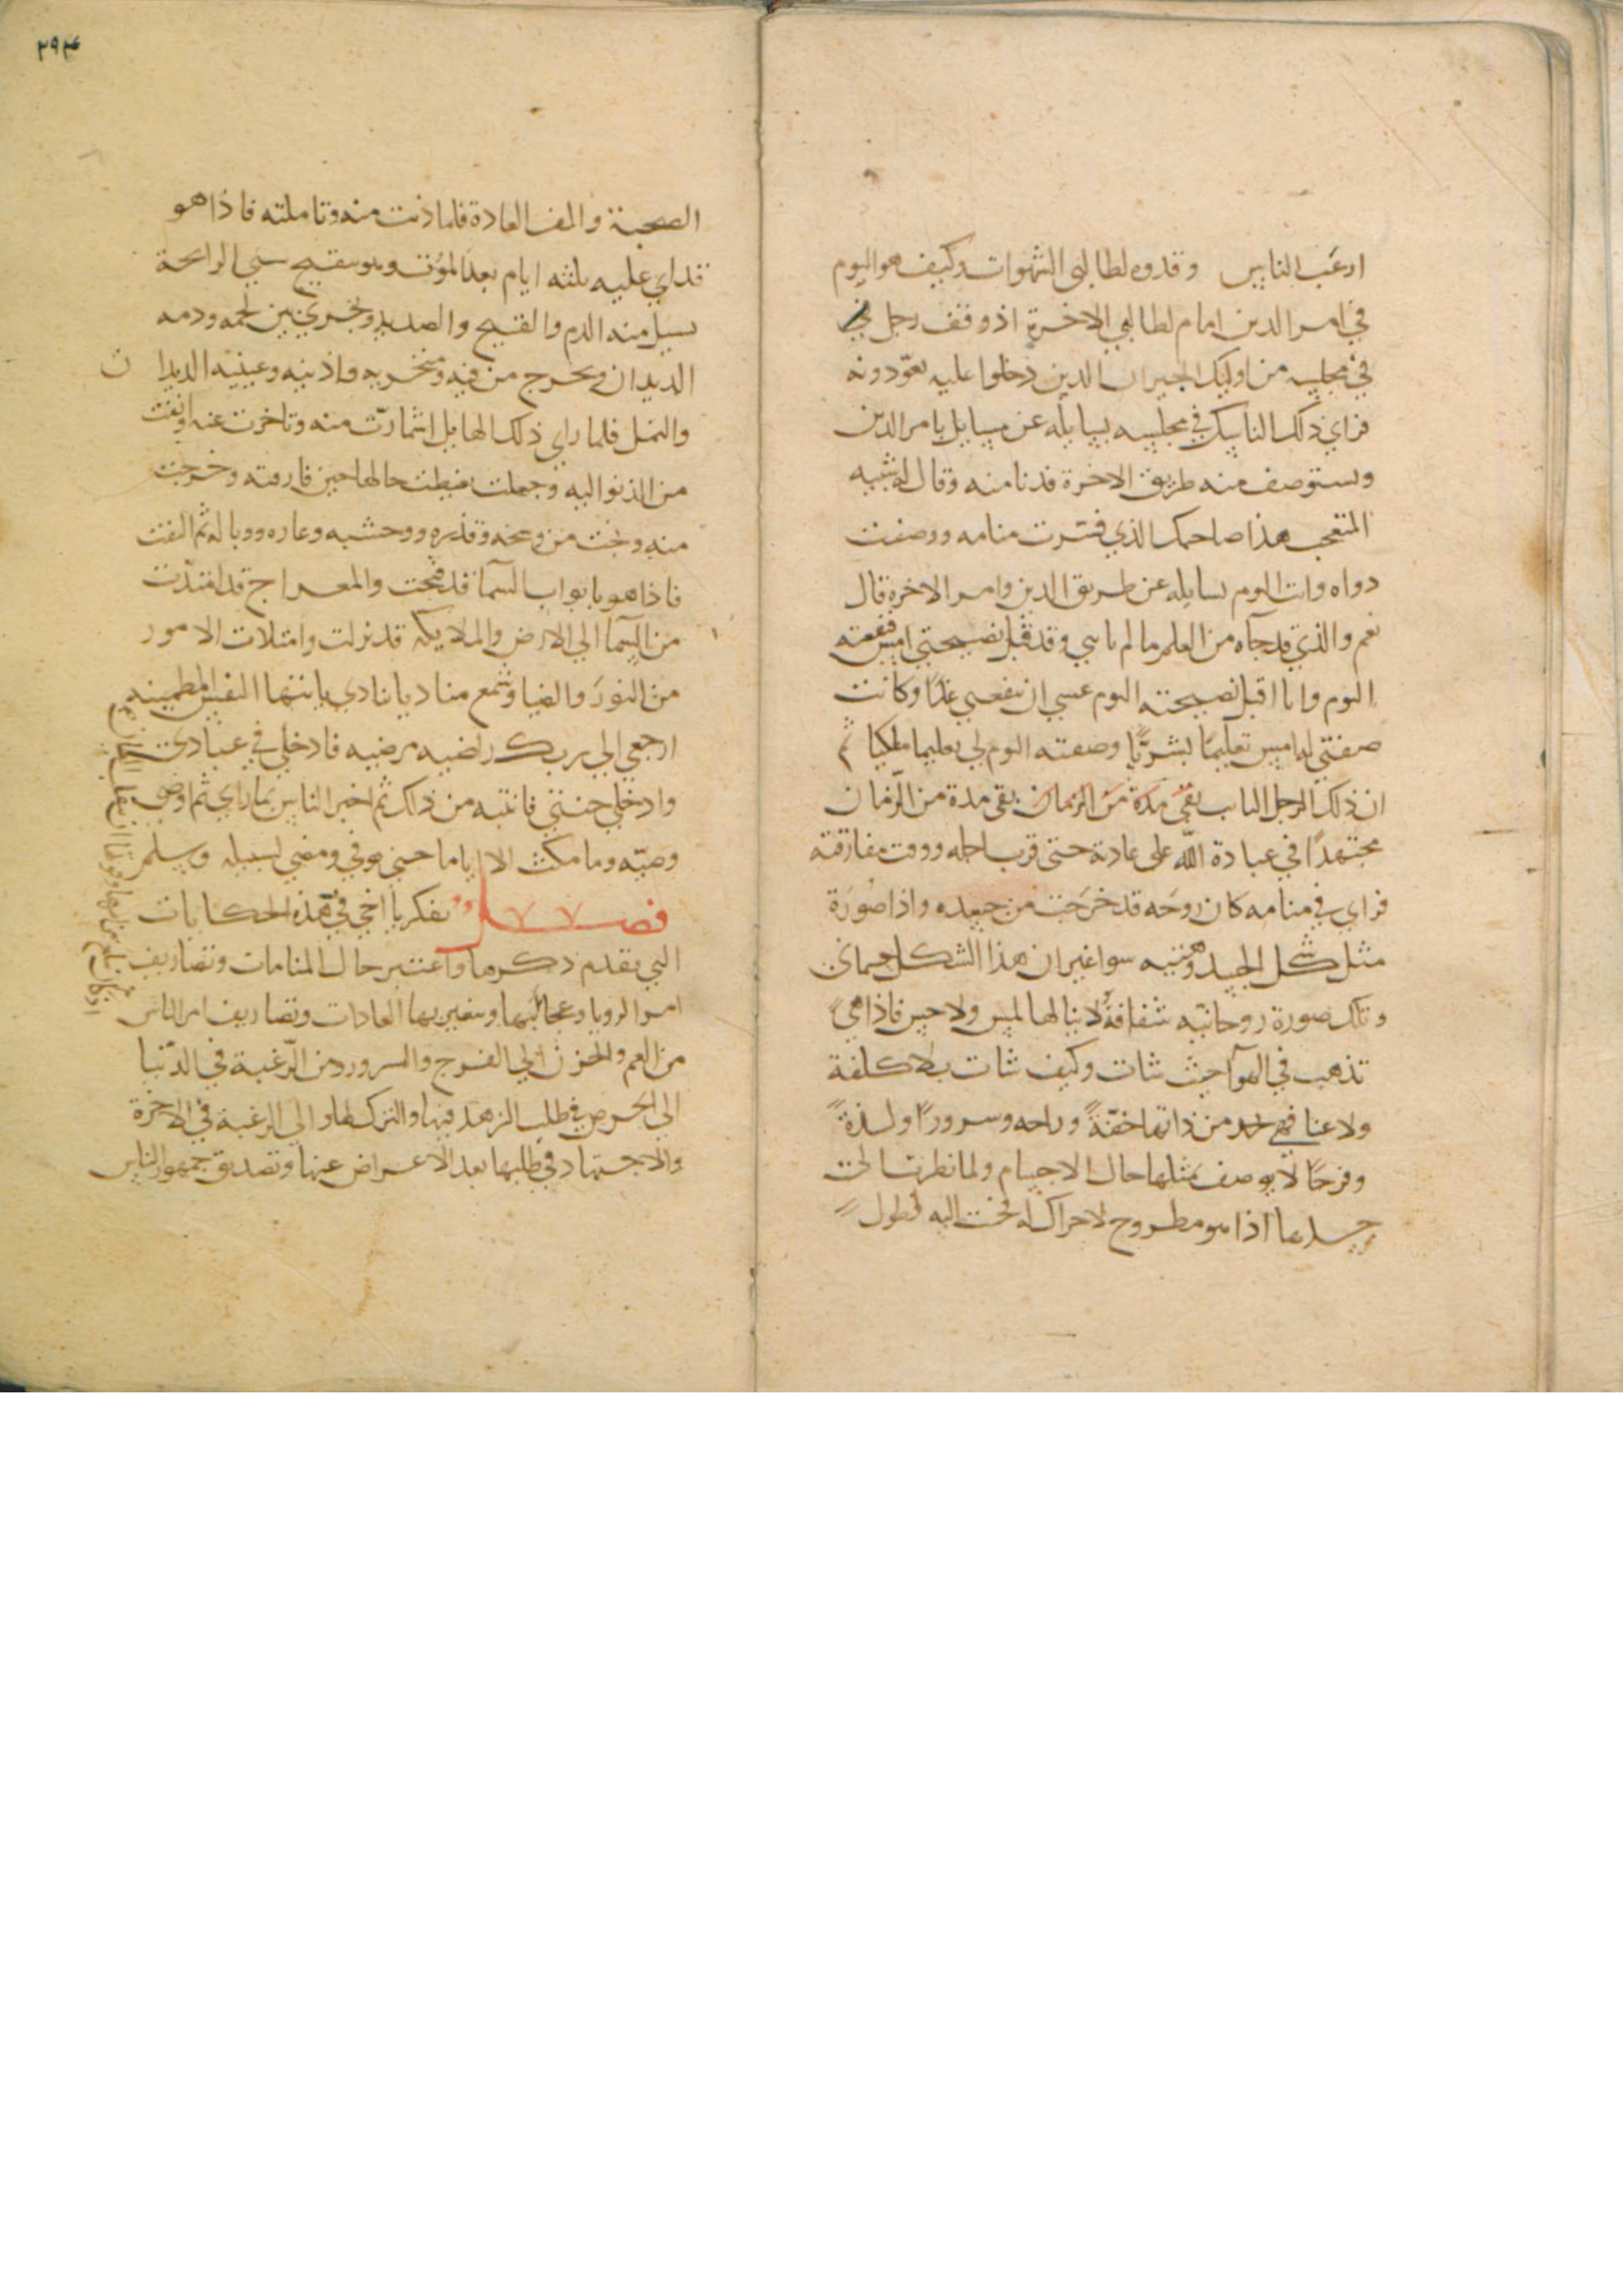 ارغب الناس وقدوه لطالبي الشهوات وكيف هو اليوم
في امر الدين امام لطالبي الاخرة اذ وقف رجل
في مجلسه من اوليك الجيران الذين دخلوا عليه يعودونه
فراي ذلك الناسك في مجلسه يسايله عن مسايل بامر الدين
ويستوصف منه طريق الاخرة فدنا منه وقال له شبيه
المتعجب هذا صاحبك الذي فسرت منامه ووصفت
دواه وانت اليوم تسايله عن طريق الدين وامر الاخرة قال
نعم والذي قد جآه من العلم ما لم ياتني وقد قبل نصيحتي امس فنفعته
اليوم وانا اقبل نصيحته اليوم عسي ان تنفعني غدًا وكانت
صفتي له امس تعليمًا بشريًّا وصفته اليوم لي تعليما ملكيا ثم
ان ذلك الرجل التايب بقي مدة من الزمان بقي مدة من الزمان
مجتهدًا في عبادة الله علي عادته حتي قرب اجله ووقت مفارقته
فراي في منامه كان روحه قد خرجت من جسده واذا صورة
مثل شكل الجسد وهيئته سوا غير ان هذا الشكل جسماني
وتلك صورة روحانيه شفافة لا ينالها لمس ولا حس فاذا هي
تذهب في الهوآ حيث شات وكيف شات بلا كلفة
ولا عنا فهي تجد من ذاتها خفّةً وراحه وسرورًا ولذةً
وفرحًا لا يوصف بمثلها حال الاجسام ولما نظرت الي
جسدها اذا هو مطروح لا حراك له فحنت اليه لطول
الصحبة والف العادة فلما دنت منه وتاملته فاذا هو
قد اتي عليه ثلثه ايام بعد الموت وهو منفسخ منتن الرايحة
يسيل منه الدم والقيح والصديد وتجري بين لحمه ودمه
الديدان ويخرج من فيه ومنخريه واذنيه وعينيه الديدان
والنمل فلما راي ذلك الهايل اشمازت منه وتاخرت عنه وانفت
من الدنو اليه وجعلت غبطت حالها حين فارقته وخرجت
منه ونجت من وسخه وقذره ووحشته وعاره ووباله ثم التفت
فاذا هو بابواب السمآ قد فتحت والمعراج قد امتدت
من السمآ الي الارض والملايكه قد نزلت وامتلات الامور
من النور والضيا وتسمع مناديا ينادي يا ايتها النفس المطمينه
ارجعي الي ربك راضيه مرضيه فادخلي في عبادي
وادخلي جنتي فانتبه من ذلك ثم اخبر الناس بما راي ثم اوصي
وصيّه وما مكث الا اياما حتي توفي ومضي لسبيله وسلم
فصل تفكر يا اخي في هذه الحكايات
التي تقدم ذكرها واعتبر حال المنامات وتصاريف
امور الرويا وعجايبها وتغييرها العادات وتصاريف امر الناس
من الغم والحزن الي الفرح والسرور ومن الرغبة في الدنيا
الي الحرص في طلب الزهد فيها والترك لها والي الرغبة في الاخرة
والاجتهاد في طلبها بعد الاعراض عنها وتصديق جمهور الناس